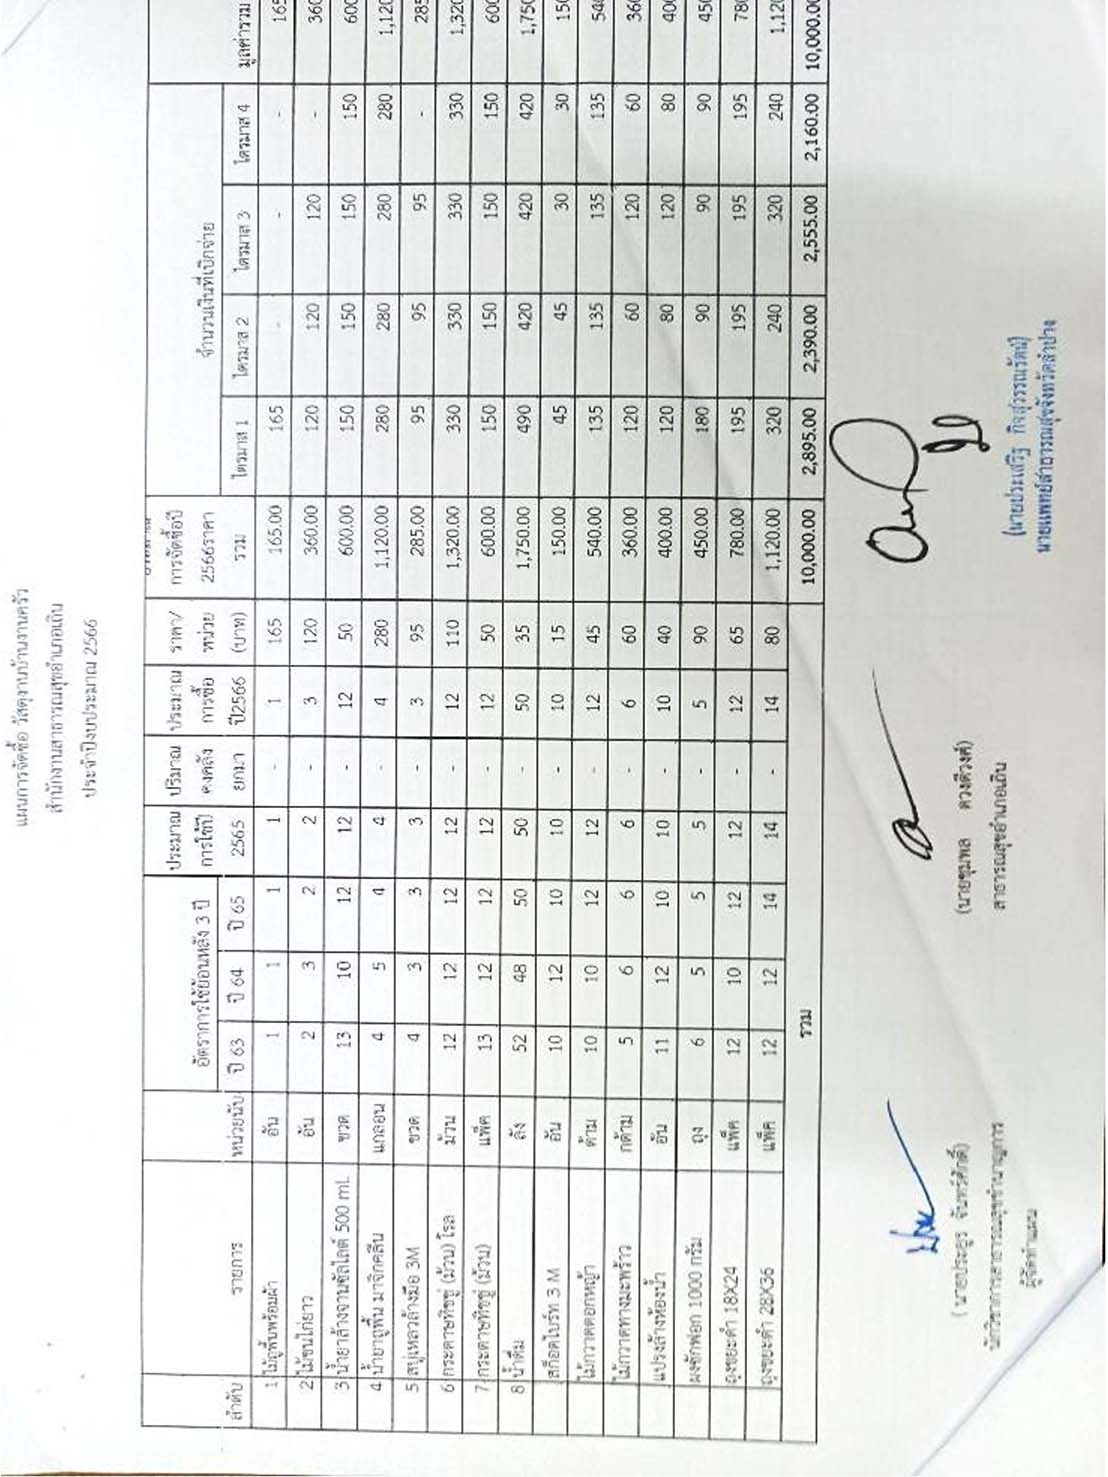 แผนการจัดซื้อ วัสดุงานบ้านงานครัว
สำนักงานสาธารณสุขอำเภอเถิน
ประจำปีงบประมาณ 2566
ลำดับ รายการ หน่วยนับ อัตราการใช้ย้อนหลัง 3 ปี ประมาณ การใช้ปี 2565 ปริมาณ คงคลัง ยกมา ประมาณ การซื้อ ปี2566 ราคา/ หน่วย (บาท) การจัดซื้อปี 2566ราคา รวม จำนวนเงินที่เบิกจ่าย มูลค่ารวม
ปี 63 ปี 64 ปี 65 ไตรมาส 1 ไตรมาส 2 ไตรมาส 3 ไตรมาส 4
1 ไม้ถูพื้นพร้อมผ้า อัน 1 1 1 1 - 1 165 165.00 165 - - - 165
2 ไม้ขนไก่ยาว อัน 2 3 2 2 - 3 120 360.00 120 120 120 - 360
3 น้ำยาล้างจานซันไลต์ 500 ml. ขวด 13 10 12 12 - 12 50 600.00 150 150 150 150 600
4 น้ำยาถูพื้น มาจิกคลีน แกลอน 4 5 4 4 - 4 280 1,120.00 280 280 280 280 1,120
5 สบู่เหลวล้างมือ 3M ขวด 4 3 3 3 - 3 95 285.00 95 95 95 - 285
6 กระดาษทิชชู่ (ม้วน) โรล ม้วน 12 12 12 12 - 12 110 1,320.00 330 330 330 330 1,320
7 กระดาษทิชชู่ (ม้วน) แพ็ค 13 12 12 12 - 12 50 600.00 150 150 150 150 600
8 น้ำดื่ม ลัง 52 48 50 50 - 50 35 1,750.00 490 420 420 420 1,750
สก็อตไบร์ท 3 M อัน 10 12 10 10 - 10 15 150.00 45 45 30 30 150
ไม้กวาดดอกหญ้า ด้าม 10 10 12 12 - 12 45 540.00 135 135 135 135 540
ไม้กวาดทางมะพร้าว กด้าม 5 6 6 6 - 6 60 360.00 120 60 120 60 360
แปรงล้างห้องน้ำ อัน 11 12 10 10 - 10 40 400.00 120 80 120 80 400
ผงซักฟอก 1000 กรัม ถุง 6 5 5 5 - 5 90 450.00 180 90 90 90 450
ถุงขยะดำ 18X24 แพ็ค 12 10 12 12 - 12 65 780.00 195 195 195 195 780
ถุงขยะดำ 28X36 แพ็ค 12 12 14 14 - 14 80 1,120.00 320 240 320 240 1,120
รวม 10,000.00 2,895.00 2,390.00 2,555.00 2,160.00 10,000.00
( นายประยูร จันทร์ศักดิ์)
นักวิชาการสาธารณสุขชำนาญการ
ผู้จัดทำแผน
(นายชุมพล ดวงดีวงค์)
สาธารณสุขอำเภอเถิน
(นายประเสริฐ กิจสุวรรณรัตน์)
นายแพทย์สาธารณสุขจังหวัดลำปาง